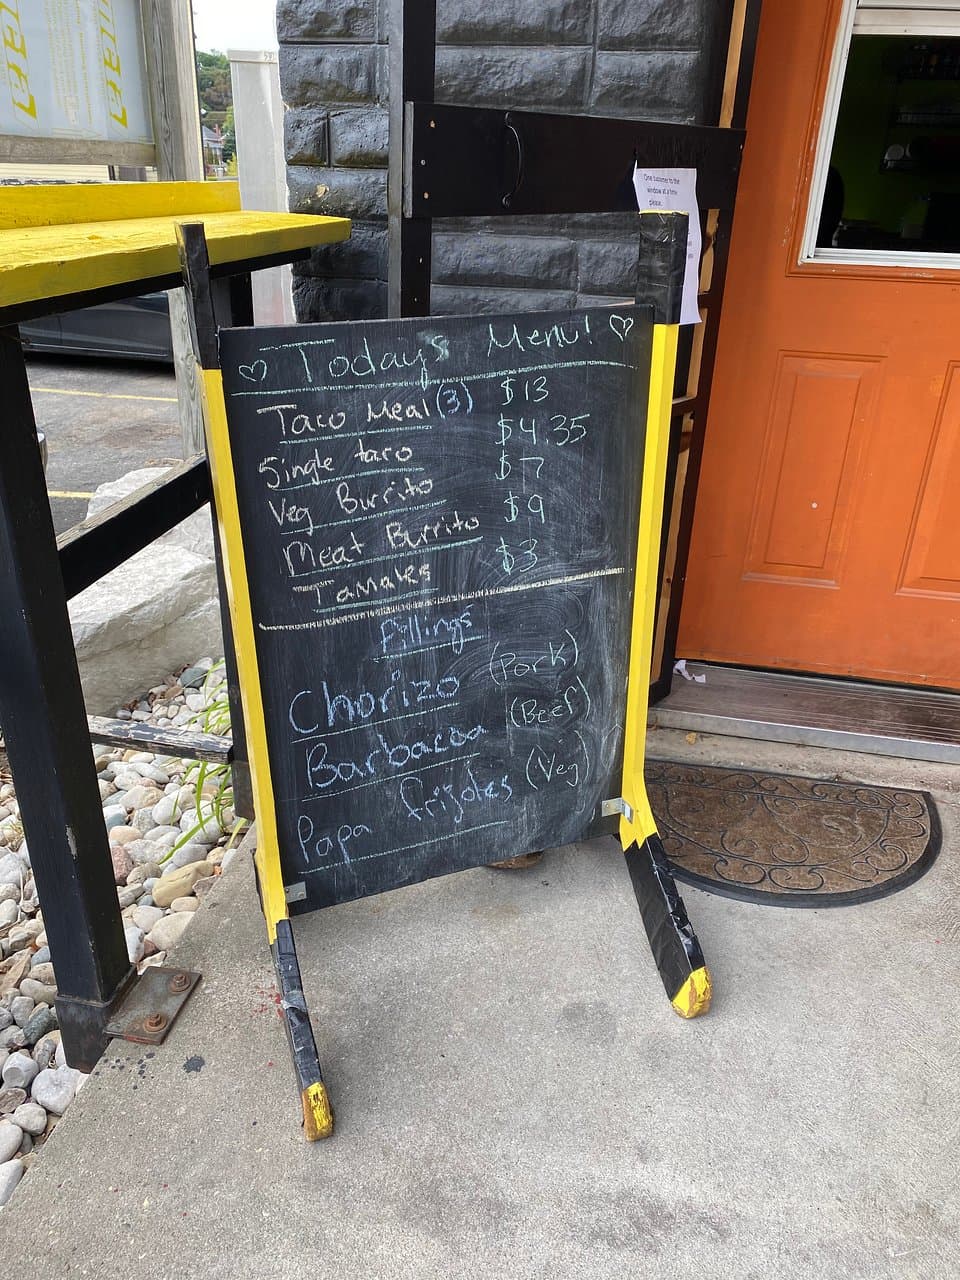 One customer to the
window at a time
please.
Today's Menu!
Taco Meal (3) $13
Single taco $4.35
Veg Burrito $7
Meat Burrito $9
Tamales $3
fillings
Chorizo (Pork)
Barbacoa (Beef)
Papa frijoles (Veg)